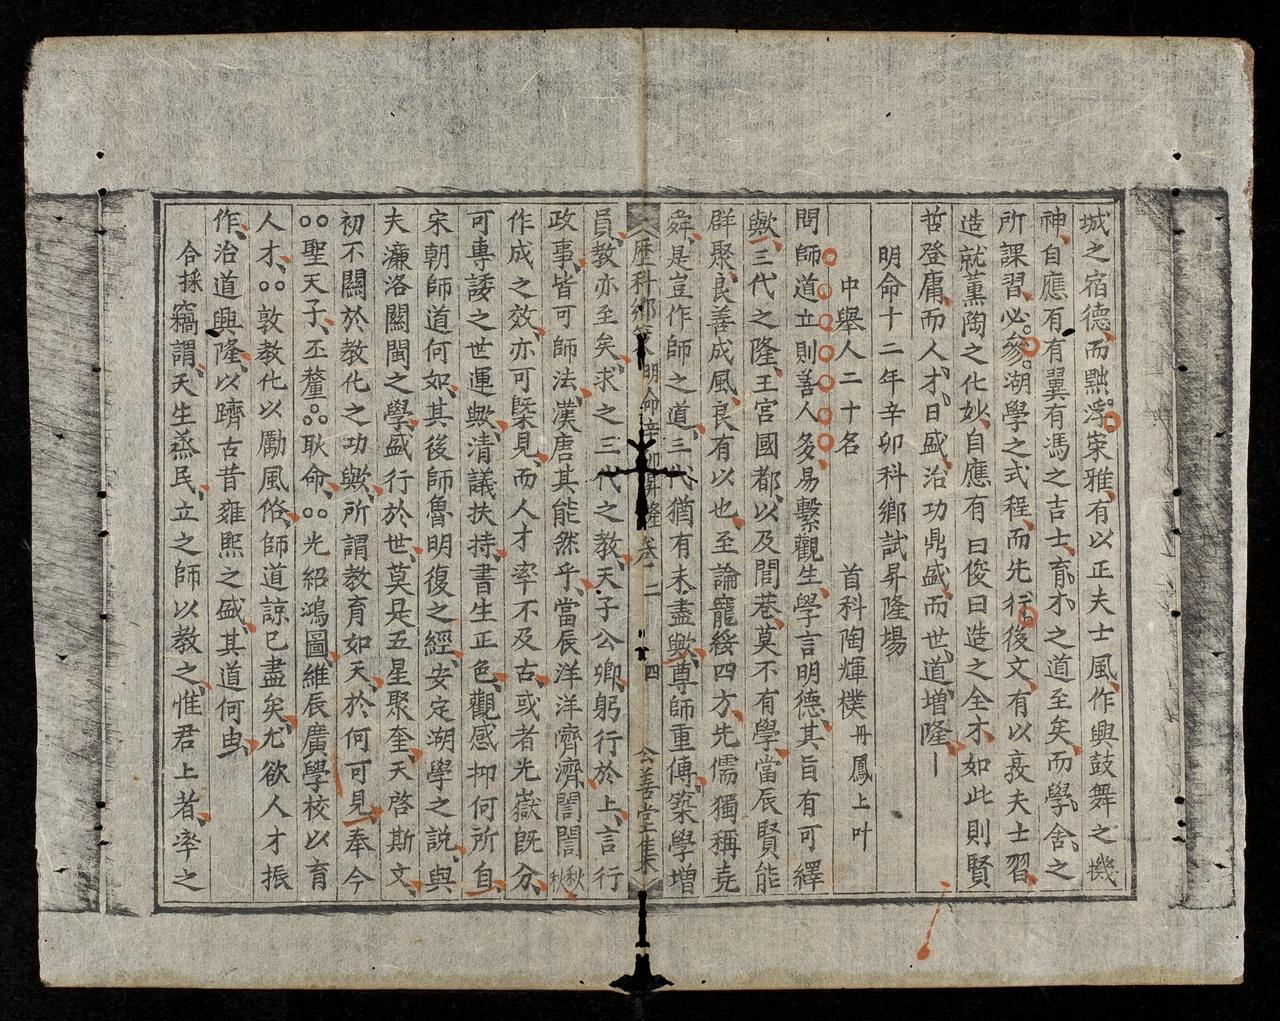 城之宿德、而黜浮崇雅、有以正夫士風、作興鼓舞之機
神、自應有有翼有馮之吉士、育才之道至矣、而學舍之
所課習、必參湖學之式程、而先行後文、有以袞夫士習、
造就薰陶之化妙、自應有曰俊曰造之全才、如此則賢
哲登庸、而人才日盛、治功鼎盛、而世道增隆、
明命十二年辛卯科鄉試昇隆場
中舉人二十名 首科陶輝樸丹鳳上叶
問師道立則善人多、易繫觀生、學言明德、其旨有可繹
歟、三代之隆、王宮國都、以及閭巷、莫不有學、當辰賢能
群聚、良善成風、良有以也、至論寵綏四方、先儒獨稱堯
舜、是豈作師之道、三代猶有未盡歟、尊師重傅、築學增
歷科鄉策 明命辛卯昇隆 卷二 四 公善堂集
員、教亦至矣、求之三代之教、天子公卿、躬行於上、言行
政事、皆可師法、漢唐其能然乎、當辰洋洋濟濟、誾誾秋秋
作成之效、亦可槩見、而人才率不及古、或者光嶽既分、
可專諉之世運歟、清議扶持、書生正色、觀感抑何所自、
宋朝師道何如、其後師魯明復之經、安定湖學之説、與
夫濂洛關閩之學、盛行於世、莫是五星聚奎、天啓斯文、
初不關於教化之功歟、所謂教育如天、於何可見、奉今
○○聖天子、丕釐○○耿命、○○光紹鴻圖、維辰廣學校以育
人才、○○敦教化以勵風俗、師道諒已盡矣、尤欲人才振
作、治道興隆、以躋古昔雍熙之盛、其道何由、
合採竊謂、天生烝民、立之師以教之、惟君上者、率之